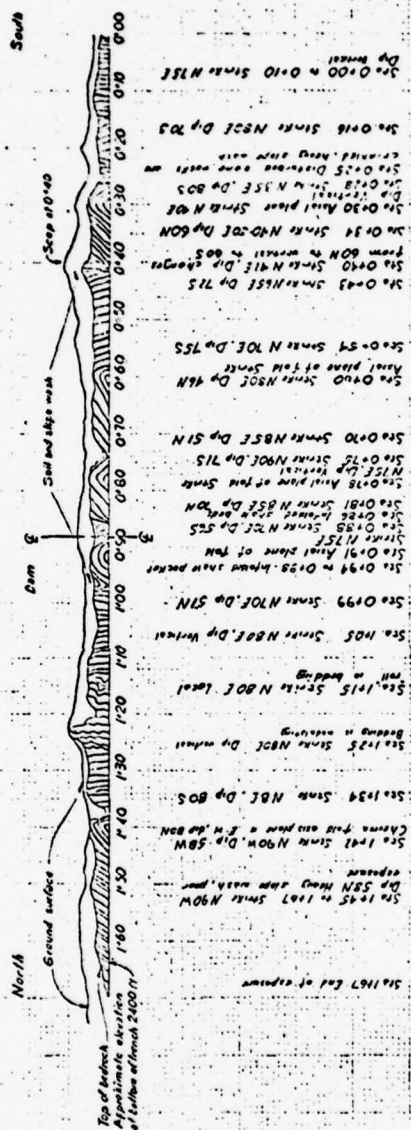 South
North
Scap at 0+40
Soil and slope wash
Dam
℄
℄
Ground surface
Top of bedrock
Approximate elevation
of bottom of trench 2400 ft
0+00
0+10
0+20
0+30
0+40
0+50
0+60
0+70
0+80
0+90
1+00
1+10
1+20
1+30
1+40
1+50
1+60
Sta 0+00 to 0+10 Strike N75E
Dip Vertical
Sta. 0+16 Strike N80E Dip 70S
Sta 0+25 Disturbed zone rocks are
crinkled, heavy slope wash
Sta. 0+28 Strike N35E, Dip 80S
Sta 0+30 Axial plane Strike N40E
Dip Vertical
Sta 0+34 Strike N40-50E Dip 60N
Sta 0+40 Strike N41E, Dip changes
from 60N to vertical to 60S
Sta 0+43 Strike N65E Dip 72S
Sta 0+54 Strike N70E, Dip 75S
Sta 0+60 Strike N80E Dip 46N
Axial plane of fold Strike
Sta 0+70 Strike N85E Dip 51N
Sta 0+75 Strike N90E, Dip 71S
Sta 0+78 Axial plane of fold Strike
N75E Dip Vertical
Sta 0+81 Strike N85E Dip 70N
Sta 0+86 Infaced shale beds
Sta 0+88 Strike N70E, Dip 56S
Sta 0+91 Axial plane of fold
Strike N75E
Sta 0+94 to 0+98 Infaced shale pocket
Sta 0+99 Strike N70E, Dip 51N
Sta. 1+05 Strike N80E, Dip Vertical
Sta. 1+15 Strike N80E Local
roll in bedding
Sta 1+25 Strike N80E Dip vertical
Bedding is undulating
Sta 1+34 Strike N8E, Dip 80S
Sta 1+42 Strike N90W, Dip 58W
Chevron fold axis plane is E-W, dip 80N
Sta 1+45 to 1+67 Strike N90W
Dip 55N Heavy slope wash, poor
exposure
Sta 1+67 End of exposure